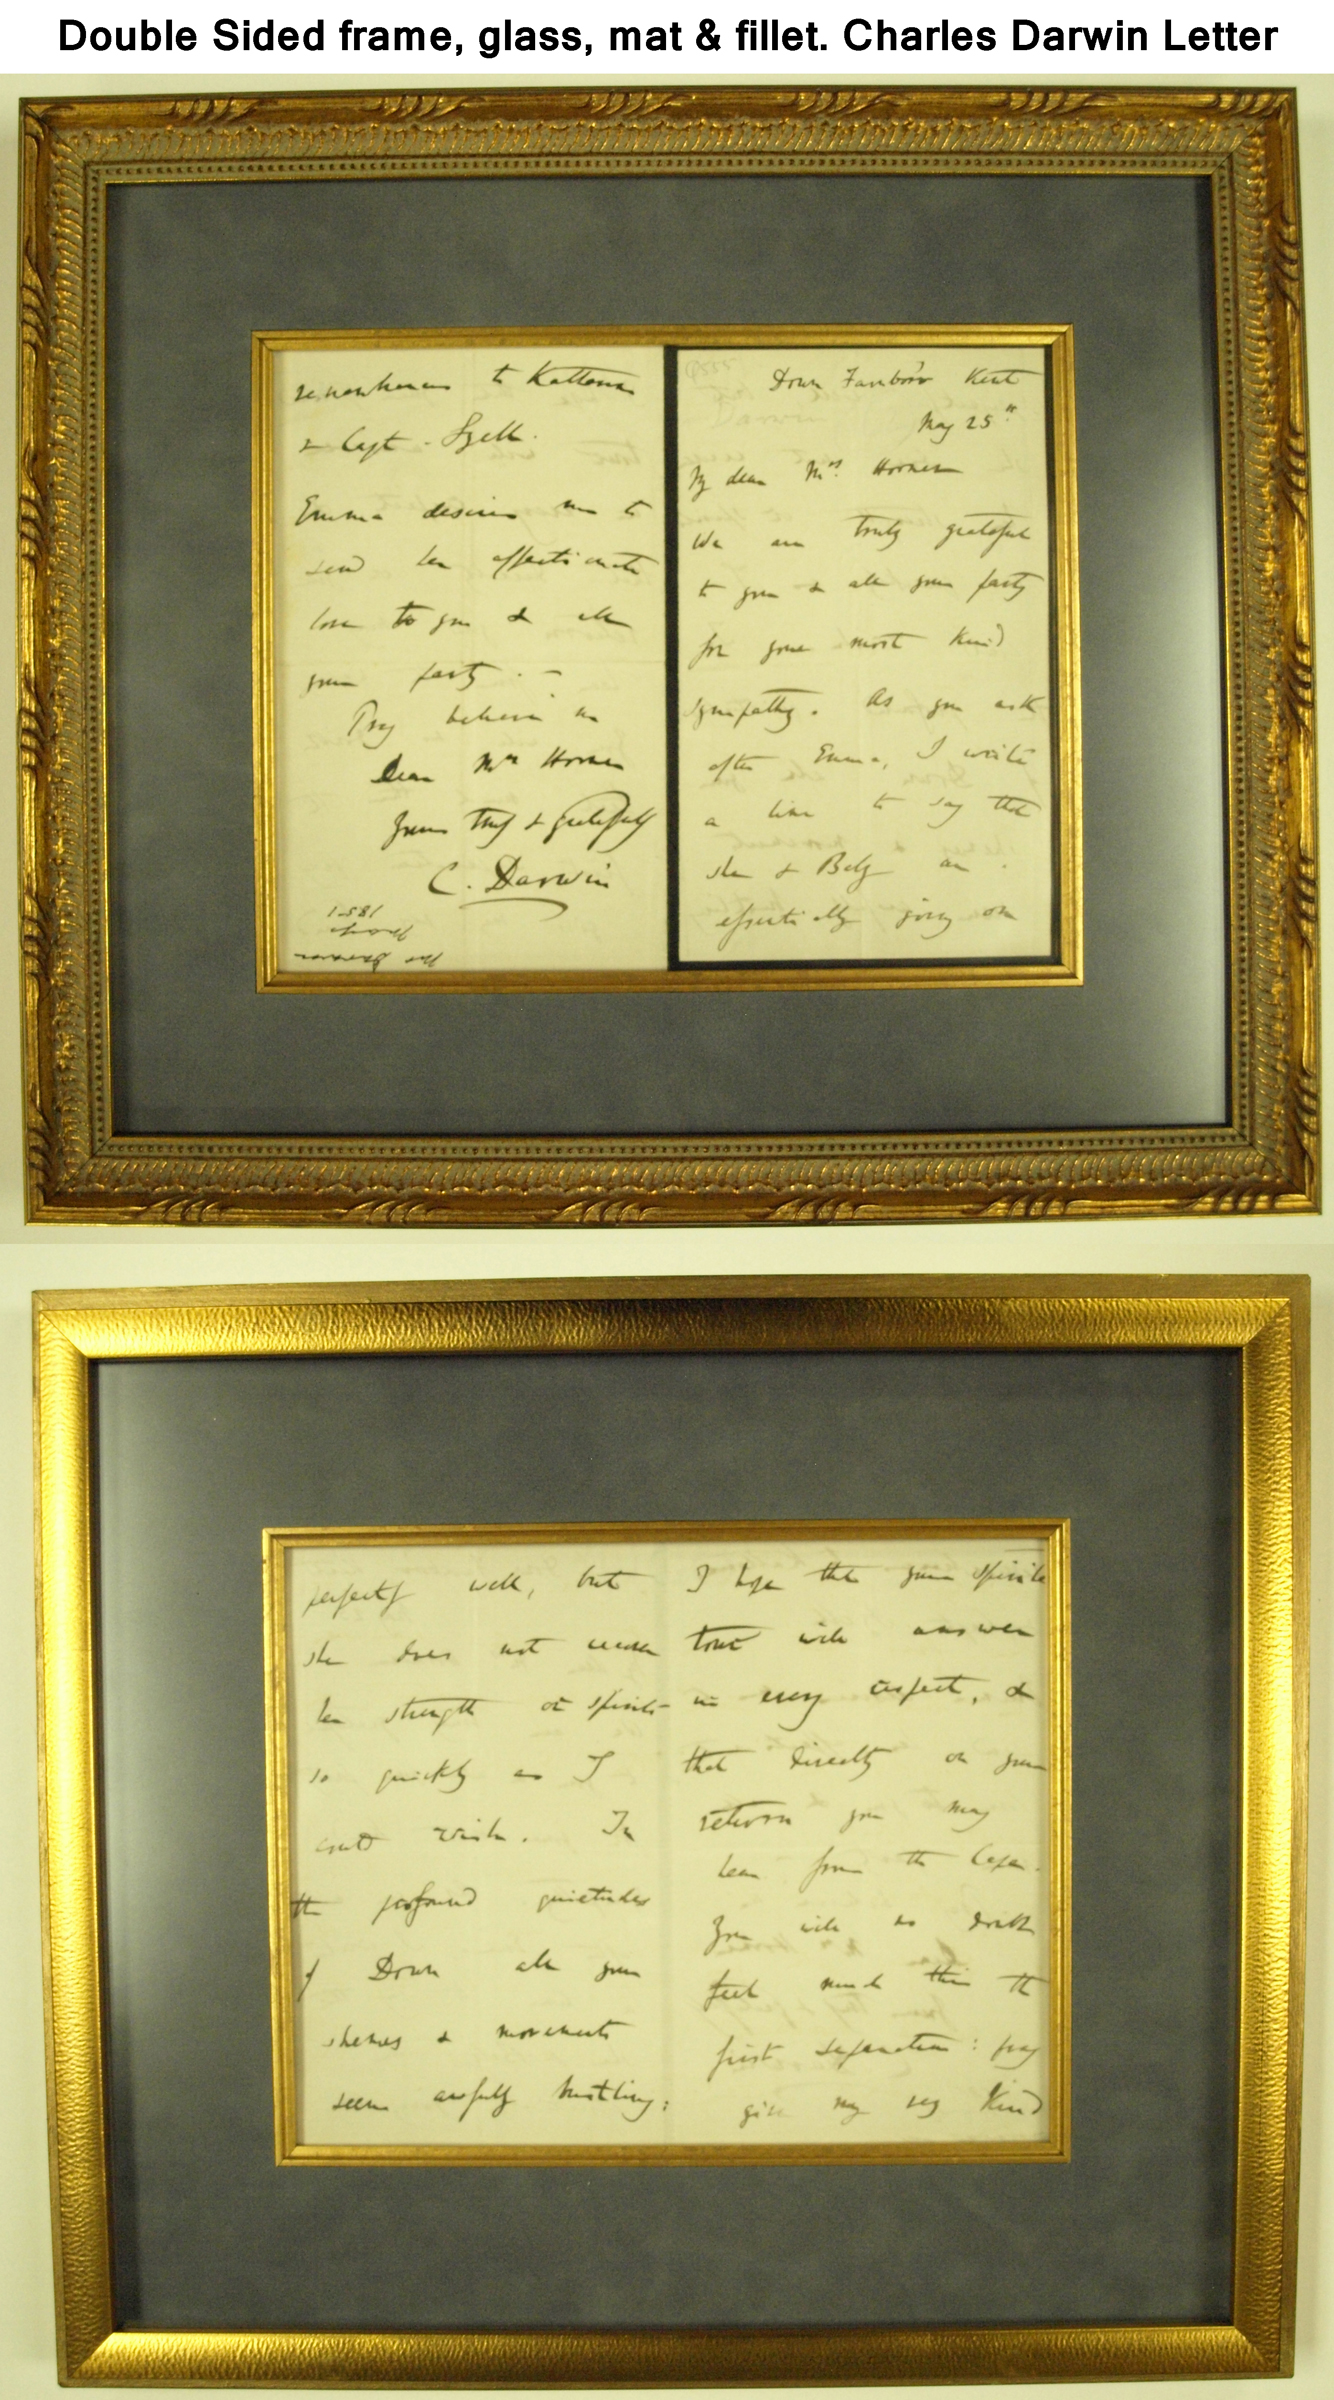 Double Sided frame, glass, mat & fillet. Charles Darwin Letter
remembrances to Katharine
& Capt. Lyell.
Emma desires me to
send her affectionate
love to you & all
your party. —
Pray believe me
Dear Mrs Horner
Yours truly & gratefully
C. Darwin
1851
Mr Darwin
Down Farnboro' Kent
May 25th
My dear Mrs. Horner
We are truly grateful
to you & all your party
for your most kind
sympathy. As you ask
after Emma, I write
a line to say that
she & Baby are
essentially going on
perfectly well, but
she does not recover
her strength or spirits
so quickly as I
could wish. In
the profound quietude
of Down all your
schemes & movements
seem awfully bustling:
I hope that your spirited
tour will answer
in every respect, &
that directly on your
return you may
hear from the Cape.
You will no doubt
feel much this the
first separation: pray
give my very kind